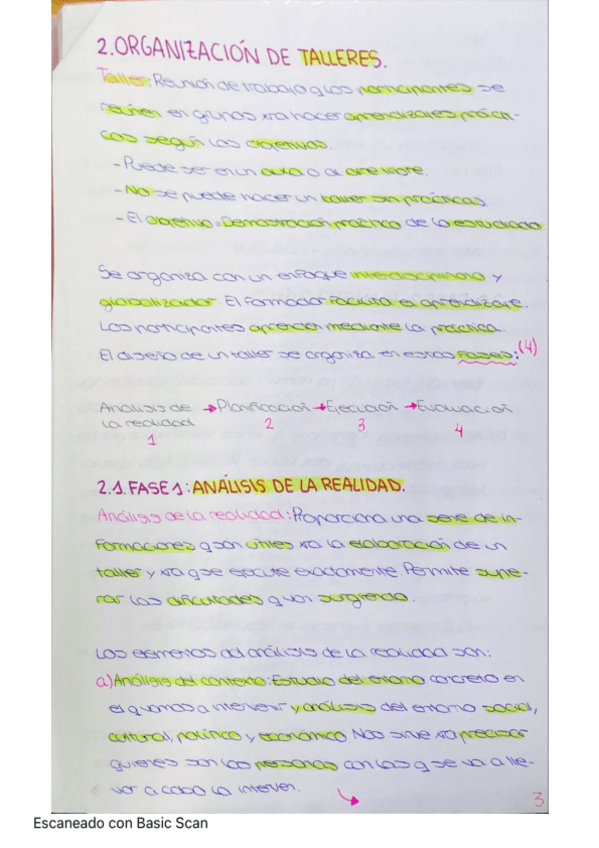 2. ORGANIZACIÓN DE TALLERES.
Taller: Reunión de trabajo q los participantes se
reúnen en grupos xra hacer aprendizajes prácti-
cos según los objetivos.
- Puede ser en un aula o al aire libre.
- No se puede hacer un taller sin prácticas
- El objetivo: Demostración práctica de lo estudiado
Se organiza con un enfoque interdisciplinario y
globalizador. El formador facilita el aprendizaje.
Los participantes aprenden mediante la práctica.
El diseño de un taller se organiza en estas fases: (4)
Análisis de → Planificación → Ejecución → Evaluación
la realidad
1 2 3 4
2.1. FASE 1: ANÁLISIS DE LA REALIDAD.
Análisis de la realidad: Proporciona una serie de in-
formaciones q son útiles xra la elaboración de un
taller y xra q se ejecute exactamente. Permite supe-
rar las dificultades q van surgiendo.
Los elementos del análisis de la realidad son:
a) Análisis del contexto: Estudio del entorno concreto en
el q vamos a intervenir y análisis del entorno social,
cultural, político y económico. Nos sirve xra precisar
quienes son las personas con las q se va a lle-
var a cabo la interven.
3
Escaneado con Basic Scan